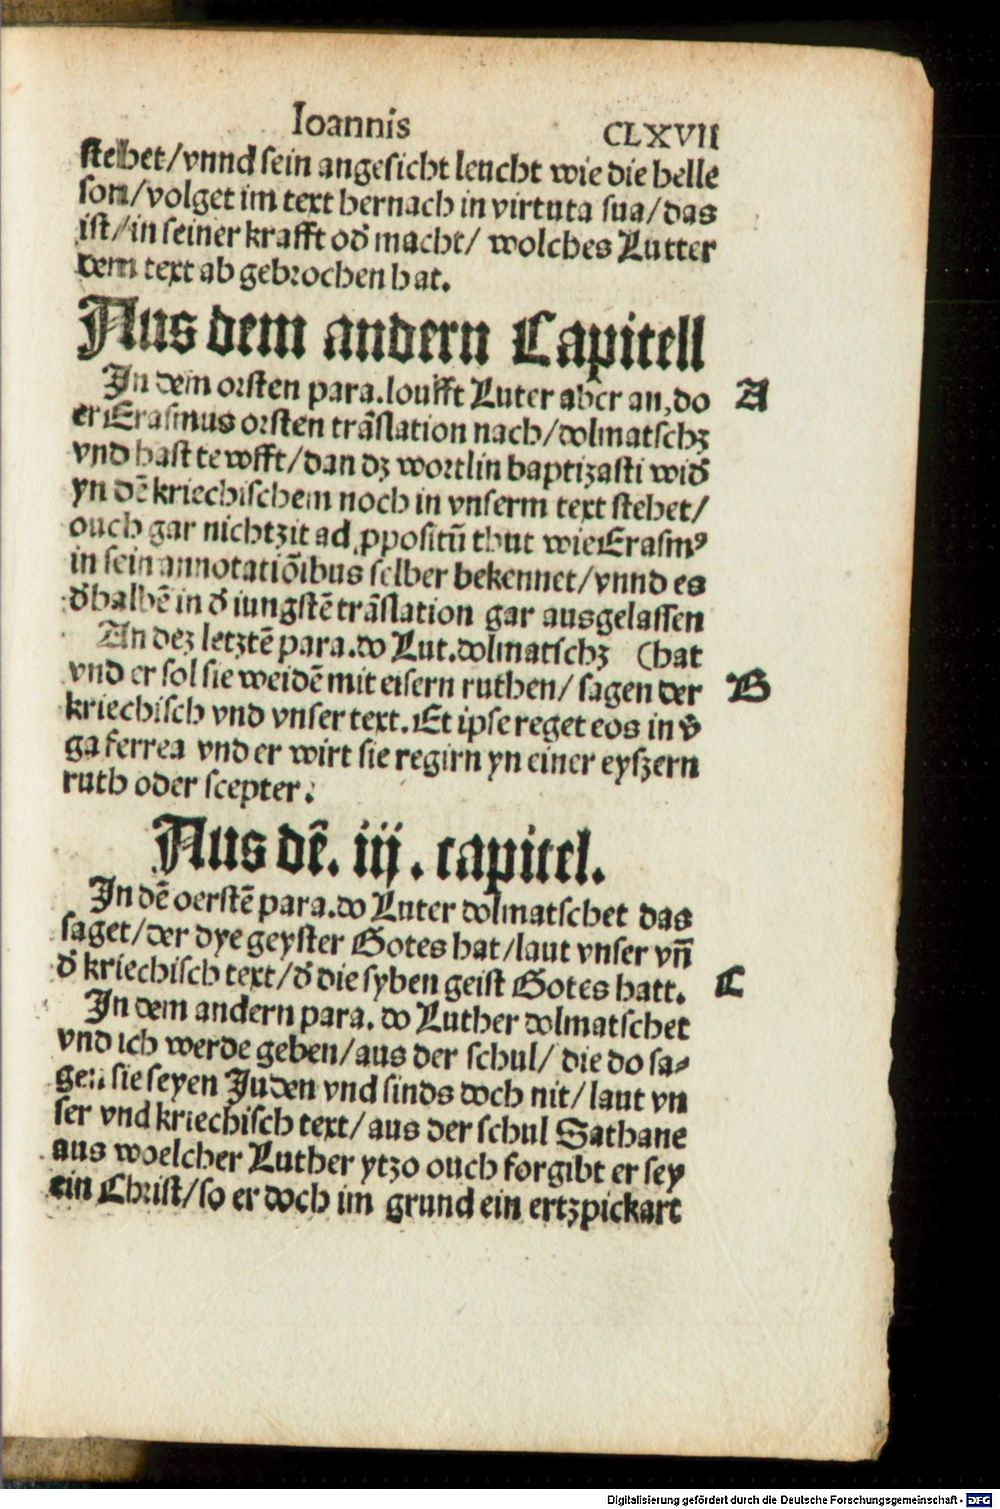 Ioannis CLXVII
stehet/vnnd sein angesicht leucht wie die helle
son/volget im text hernach in virtuta sua/das
ist/in seiner krafft od̃ macht/ wolches Lutter
dem text ab gebrochen hat.
Aus dem andern Capitell
In dem orsten para.loufft Luter aber an,do A
er Erasmus orsten trãslation nach/dolmatschz
vnd hast tewfft/dan dz wortlin baptizasti wid̃
yn dẽ kriechischem noch in vnserm text stehet/
ouch gar nichtzit ad ꝓpositũ thut wie Erasmꝰ
in sein annotatiõibus selber bekennet/vnnd es
d̃halbẽ in d̃ iungstẽ trãslation gar ausgelassen
An dez letztẽ para.do Lut.dolmatschz (hat
vnd er sol sie weidẽ mit eisern ruthen/ sagen der B
kriechisch vnd vnser text.Et ipse reget eos in v̄
ga ferrea vnd er wirt sie regirn yn einer eyszern
ruth oder scepter.
Aus dẽ. iij. capitel.
In dẽ oerstẽ para.do Luter dolmatschet das
saget/der dye geyster Gotes hat/laut vnser vñ
d̃ kriechisch text/d̃ die syben geist Gotes hatt. C
In dem andern para. do Luther dolmatschet
vnd ich werde geben/aus der schul/ die do sa⸗
gen sie seyen Juden vnd sinds doch nit/ laut vn
ser vnd kriechisch text/aus der schul Sathane
aus woelcher Luther ytzo ouch forgibt er sey
ein Christ/so er doch im grund ein ertzpickart
Digitalisierung gefördert durch die Deutsche Forschungsgemeinschaft - DFG